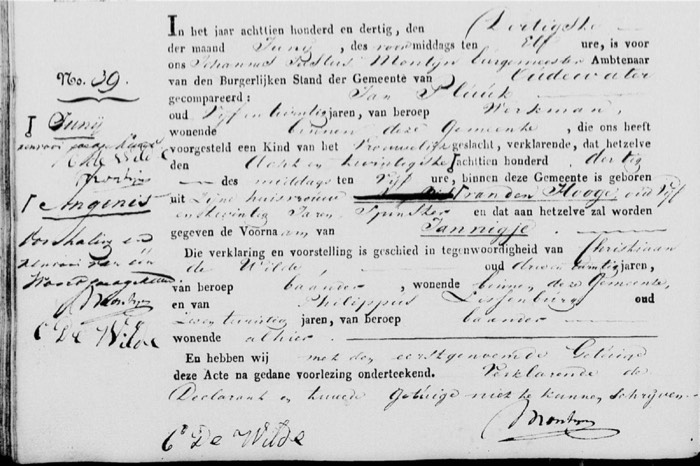 No. 39.
Junij
C de Wilde
Angenis
C De Wilde
In het jaar achttien honderd en dertig, den Dertigste
der maand Junij, des voormiddags ten Elf ure, is voor
ons Johannes Montijn burgemeester Ambtenaar
van den Burgerlijken Stand der Gemeente van Oudewater
gecompareerd: Jan Pluuk
oud Vijf en twintig jaren, van beroep Werkman,
wonende binnen deze Gemeente, die ons heeft
voorgesteld een Kind van het Vrouwelijk geslacht, verklarende, dat hetzelve
den Acht en twintigste achttien honderd dertig
des middags ten Vijf ure, binnen deze Gemeente is geboren
uit Zijne huisvrouw van den Hooge, oud Vijf
en twintig Jaren, Spinster en dat aan hetzelve zal worden
gegeven de Voornaam van Jannigje.
Die verklaring en voorstelling is geschied in tegenwoordigheid van Christiaan
de Wilde, oud drie en twintig jaren,
van beroep baander, wonende binnen deze Gemeente,
en van Philippus Lessenburg oud
twintig jaren, van beroep baander
wonende alhier.
En hebben wij met den eerstgenoemde Getuige
deze Acte na gedane voorlezing onderteekend. Verklarende de
Declarant en tweede getuige niet te kunnen schrijven.
Montijn
C De Wilde